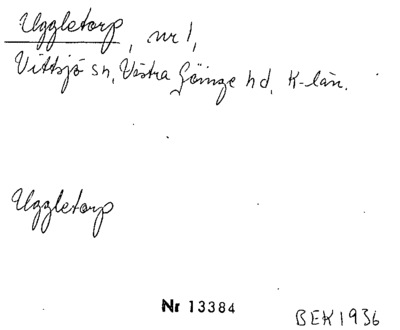 Uggletorp, nr 1,
Vittsjö sn, Västra Göinge hd, K-län.
Uggletorp
Nr 13384
BEK 1936